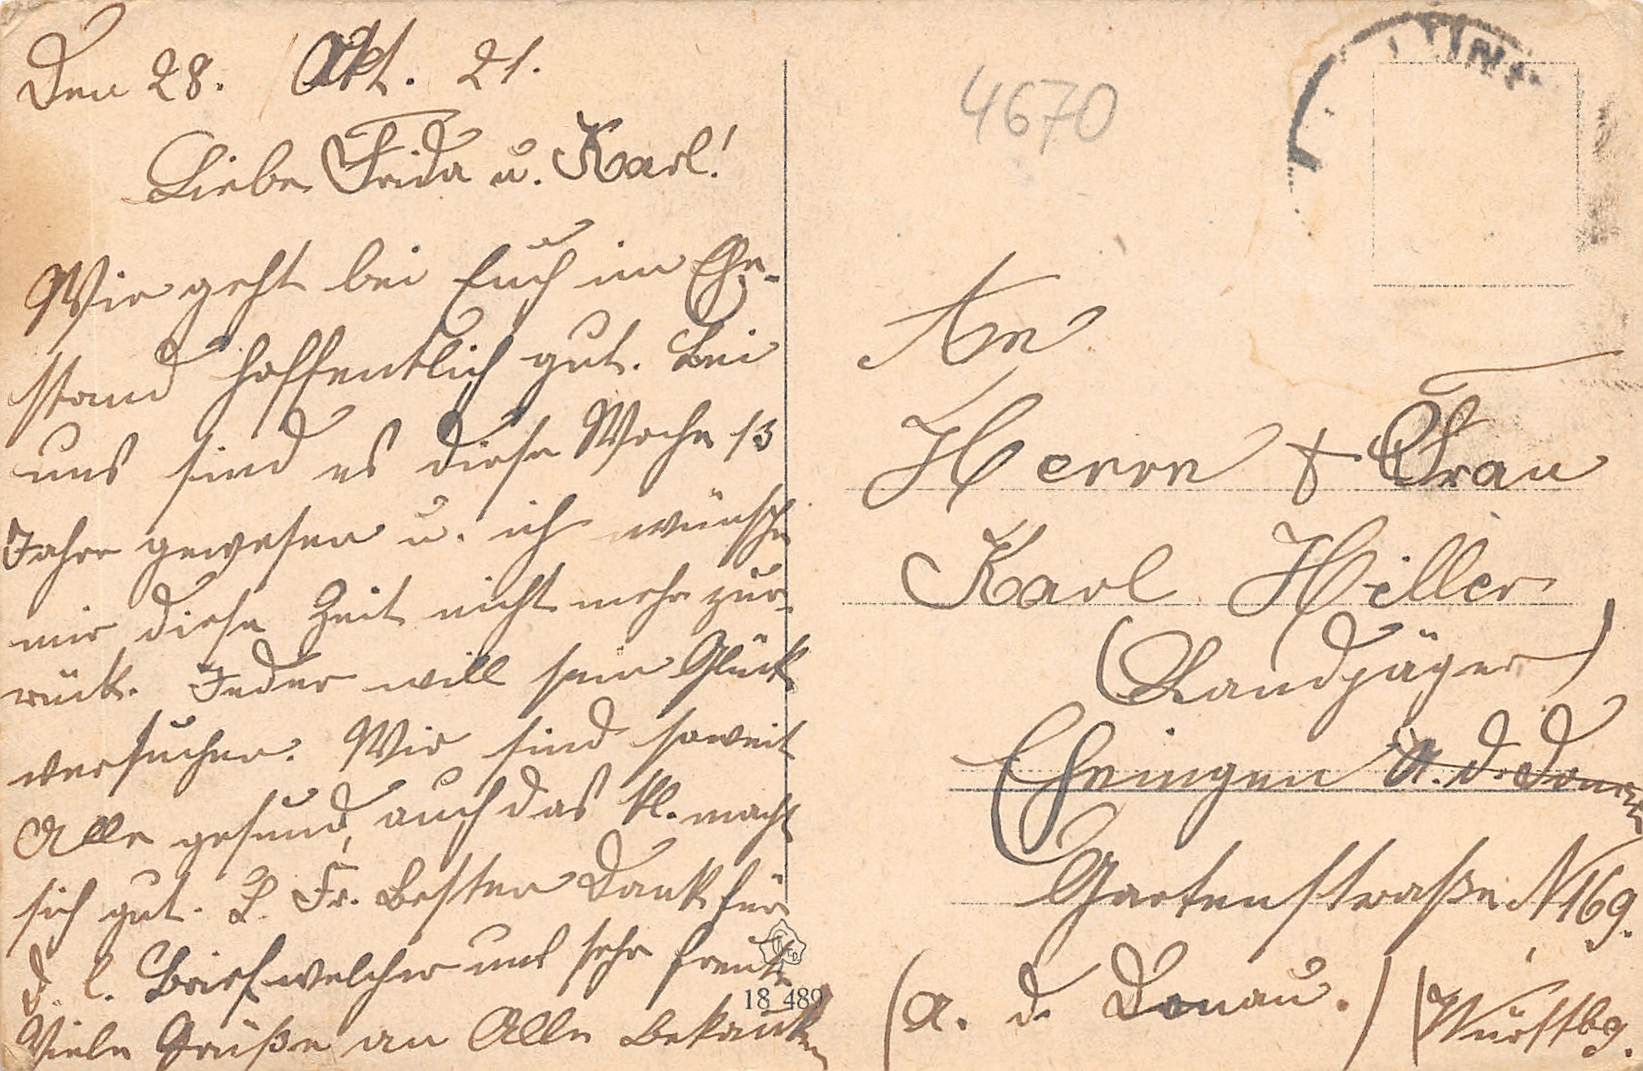 Den 28. Okt. 21.
Liebe Frida u. Karl!
Wie geht bei Euch im Ehe-
stand hoffentlich gut. Bei
uns sind es diese Woche 13
Jahre gewesen u. ich wünsche
mir diese Zeit nicht mehr zur-
rück. Jeder will sein Glück
versuchen. Wir sind soweit
Alle gesund, auch das kl. macht
sich gut. L. Fr. Besten Dank für
d. l. Brief welcher uns sehr freute
Viele Grüße an Alle Bekannten
4670
An
Herrn & Frau
Karl Hiller
(Landjäger)
Ehingen a. d. Donau
Gartenstraße N 169.
(a. d. Donau.) (Württbg.
18 489